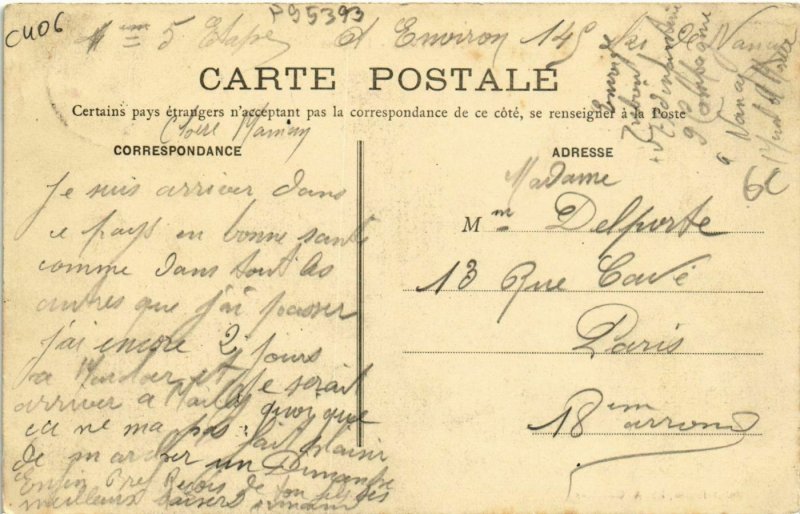 CU06
P95393
5 Etape Environ 145
CARTE POSTALE
Certains pays étrangers n'acceptant pas la correspondance de ce côté, se renseigner à la Poste
Chere Maman
CORRESPONDANCE
Je suis arriver dans
ce pays en bonne santé
comme dans tout les
autres que j'ai passer
j'ai encore 2 jours
a Marcher et je serait
arriver a Mailly quoi que
ca ne ma pas fait plaisir
de marcher un Dimanche
Enfin Reçois de ton fils ses
meilleurs baisers
ADRESSE
Madame
Mm Delporte
13 Rue Cavé
Paris
18 em arrond
6C